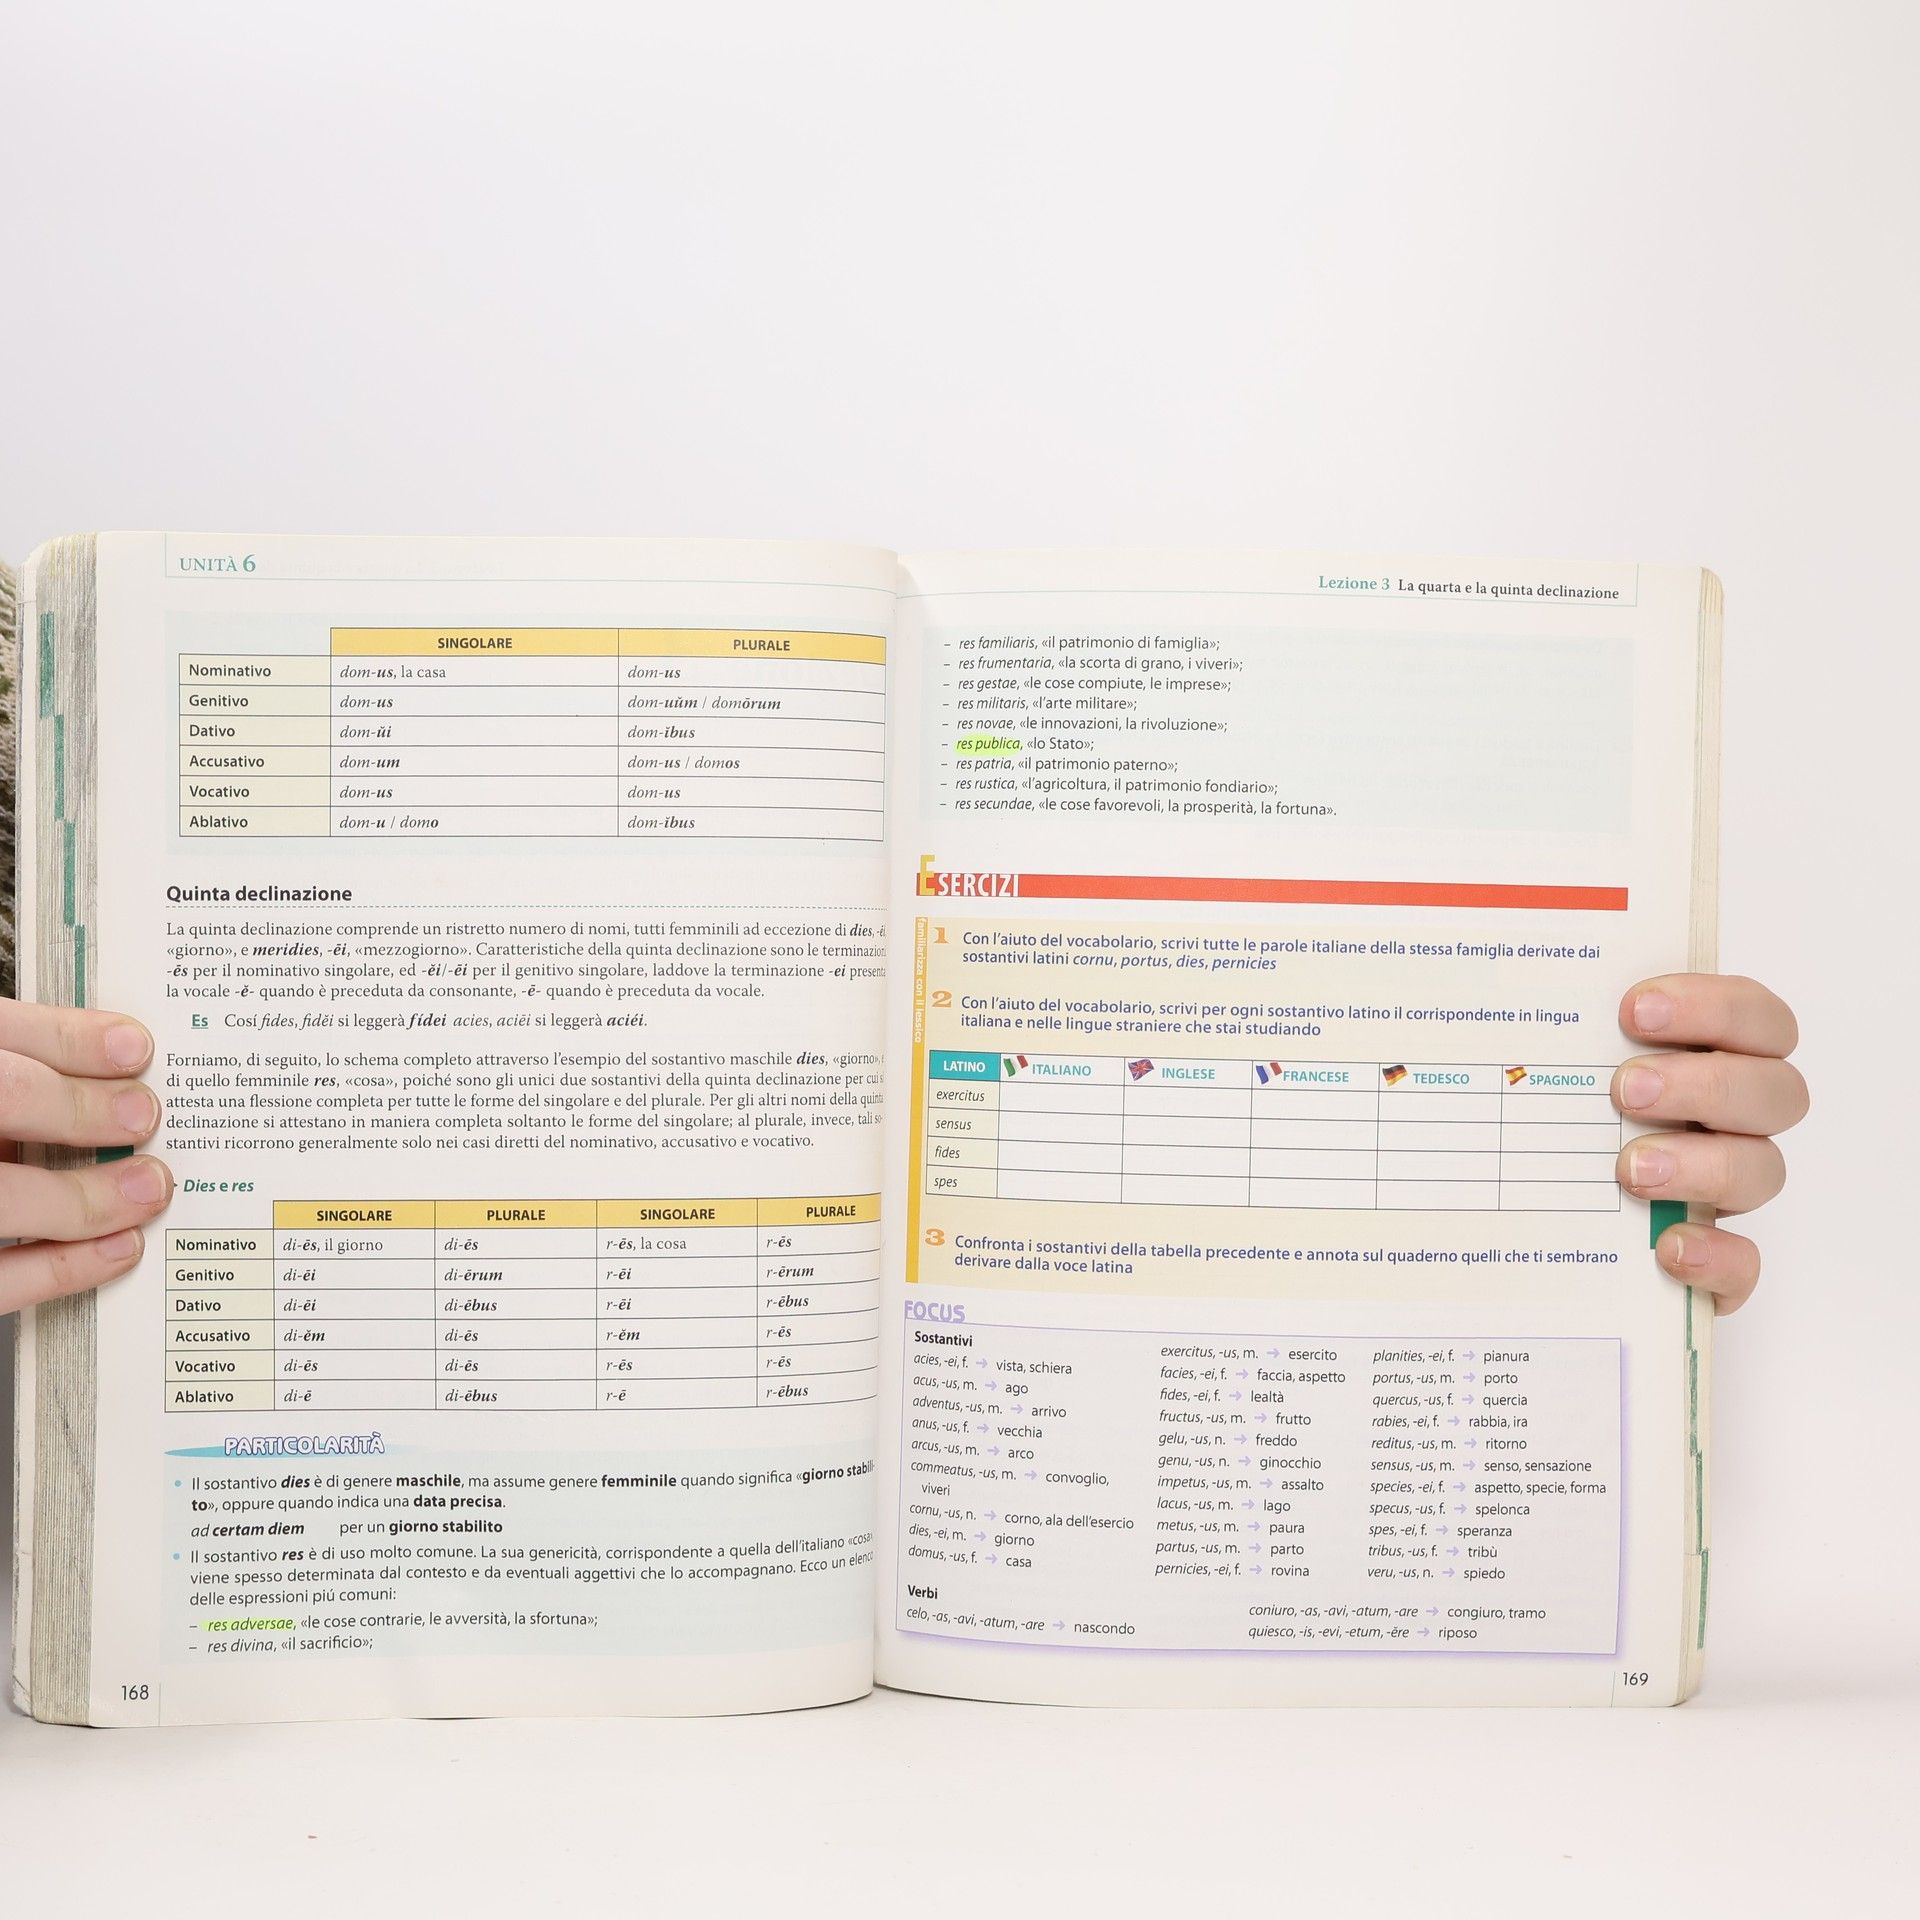 UNITÀ 6
SINGOLARE PLURALE
Nominativo dom-us, la casa dom-us
Genitivo dom-us dom-uŭm / domōrum
Dativo dom-ŭi dom-ĭbus
Accusativo dom-um dom-us / domos
Vocativo dom-us dom-us
Ablativo dom-u / domo dom-ĭbus
Quinta declinazione
La quinta declinazione comprende un ristretto numero di nomi, tutti femminili ad eccezione di dies, -ēi,
«giorno», e meridies, -ēi, «mezzogiorno». Caratteristiche della quinta declinazione sono le terminazioni
-ēs per il nominativo singolare, ed -ĕi/-ēi per il genitivo singolare, laddove la terminazione -ei presenta
la vocale -ĕ- quando è preceduta da consonante, -ē- quando è preceduta da vocale.
Es Cosí fides, fidĕi si leggerà fídei acies, aciēi si leggerà aciéi.
Forniamo, di seguito, lo schema completo attraverso l'esempio del sostantivo maschile dies, «giorno»,
di quello femminile res, «cosa», poiché sono gli unici due sostantivi della quinta declinazione per cui si
attesta una flessione completa per tutte le forme del singolare e del plurale. Per gli altri nomi della quinta
declinazione si attestano in maniera completa soltanto le forme del singolare; al plurale, invece, tali so-
stantivi ricorrono generalmente solo nei casi diretti del nominativo, accusativo e vocativo.
Dies e res
SINGOLARE PLURALE SINGOLARE PLURALE
Nominativo di-ēs, il giorno di-ēs r-ēs, la cosa r-ēs
Genitivo di-ēi di-ērum r-ēi r-ērum
Dativo di-ēi di-ēbus r-ēi r-ēbus
Accusativo di-ĕm di-ēs r-ĕm r-ēs
Vocativo di-ēs di-ēs r-ēs r-ēs
Ablativo di-ē di-ēbus r-ē r-ēbus
PARTICOLARITÀ
• Il sostantivo dies è di genere maschile, ma assume genere femminile quando significa «giorno stabili-
to», oppure quando indica una data precisa.
ad certam diem per un giorno stabilito
• Il sostantivo res è di uso molto comune. La sua genericità, corrispondente a quella dell'italiano «cosa»,
viene spesso determinata dal contesto e da eventuali aggettivi che lo accompagnano. Ecco un elenco
delle espressioni piú comuni:
– res adversae, «le cose contrarie, le avversità, la sfortuna»;
– res divina, «il sacrificio»;
168
Lezione 3 La quarta e la quinta declinazione
– res familiaris, «il patrimonio di famiglia»;
– res frumentaria, «la scorta di grano, i viveri»;
– res gestae, «le cose compiute, le imprese»;
– res militaris, «l'arte militare»;
– res novae, «le innovazioni, la rivoluzione»;
– res publica, «lo Stato»;
– res patria, «il patrimonio paterno»;
– res rustica, «l'agricoltura, il patrimonio fondiario»;
– res secundae, «le cose favorevoli, la prosperità, la fortuna».
ESERCIZI
familiarizza con il lessico
1 Con l'aiuto del vocabolario, scrivi tutte le parole italiane della stessa famiglia derivate dai
sostantivi latini cornu, portus, dies, pernicies
2 Con l'aiuto del vocabolario, scrivi per ogni sostantivo latino il corrispondente in lingua
italiana e nelle lingue straniere che stai studiando
LATINO ITALIANO INGLESE FRANCESE TEDESCO SPAGNOLO
exercitus
sensus
fides
spes
3 Confronta i sostantivi della tabella precedente e annota sul quaderno quelli che ti sembrano
derivare dalla voce latina
FOCUS
Sostantivi
acies, -ei, f. → vista, schiera
acus, -us, m. → ago
adventus, -us, m. → arrivo
anus, -us, f. → vecchia
arcus, -us, m. → arco
commeatus, -us, m. → convoglio,
viveri
cornu, -us, n. → corno, ala dell'esercio
dies, -ei, m. → giorno
domus, -us, f. → casa
exercitus, -us, m. → esercito
facies, -ei, f. → faccia, aspetto
fides, -ei, f. → lealtà
fructus, -us, m. → frutto
gelu, -us, n. → freddo
genu, -us, n. → ginocchio
impetus, -us, m. → assalto
lacus, -us, m. → lago
metus, -us, m. → paura
partus, -us, m. → parto
pernicies, -ei, f. → rovina
planities, -ei, f. → pianura
portus, -us, m. → porto
quercus, -us, f. → quercia
rabies, -ei, f. → rabbia, ira
reditus, -us, m. → ritorno
sensus, -us, m. → senso, sensazione
species, -ei, f. → aspetto, specie, forma
specus, -us, f. → spelonca
spes, -ei, f. → speranza
tribus, -us, f. → tribù
veru, -us, n. → spiedo
Verbi
celo, -as, -avi, -atum, -are → nascondo
coniuro, -as, -avi, -atum, -are → congiuro, tramo
quiesco, -is, -evi, -etum, -ĕre → riposo
169